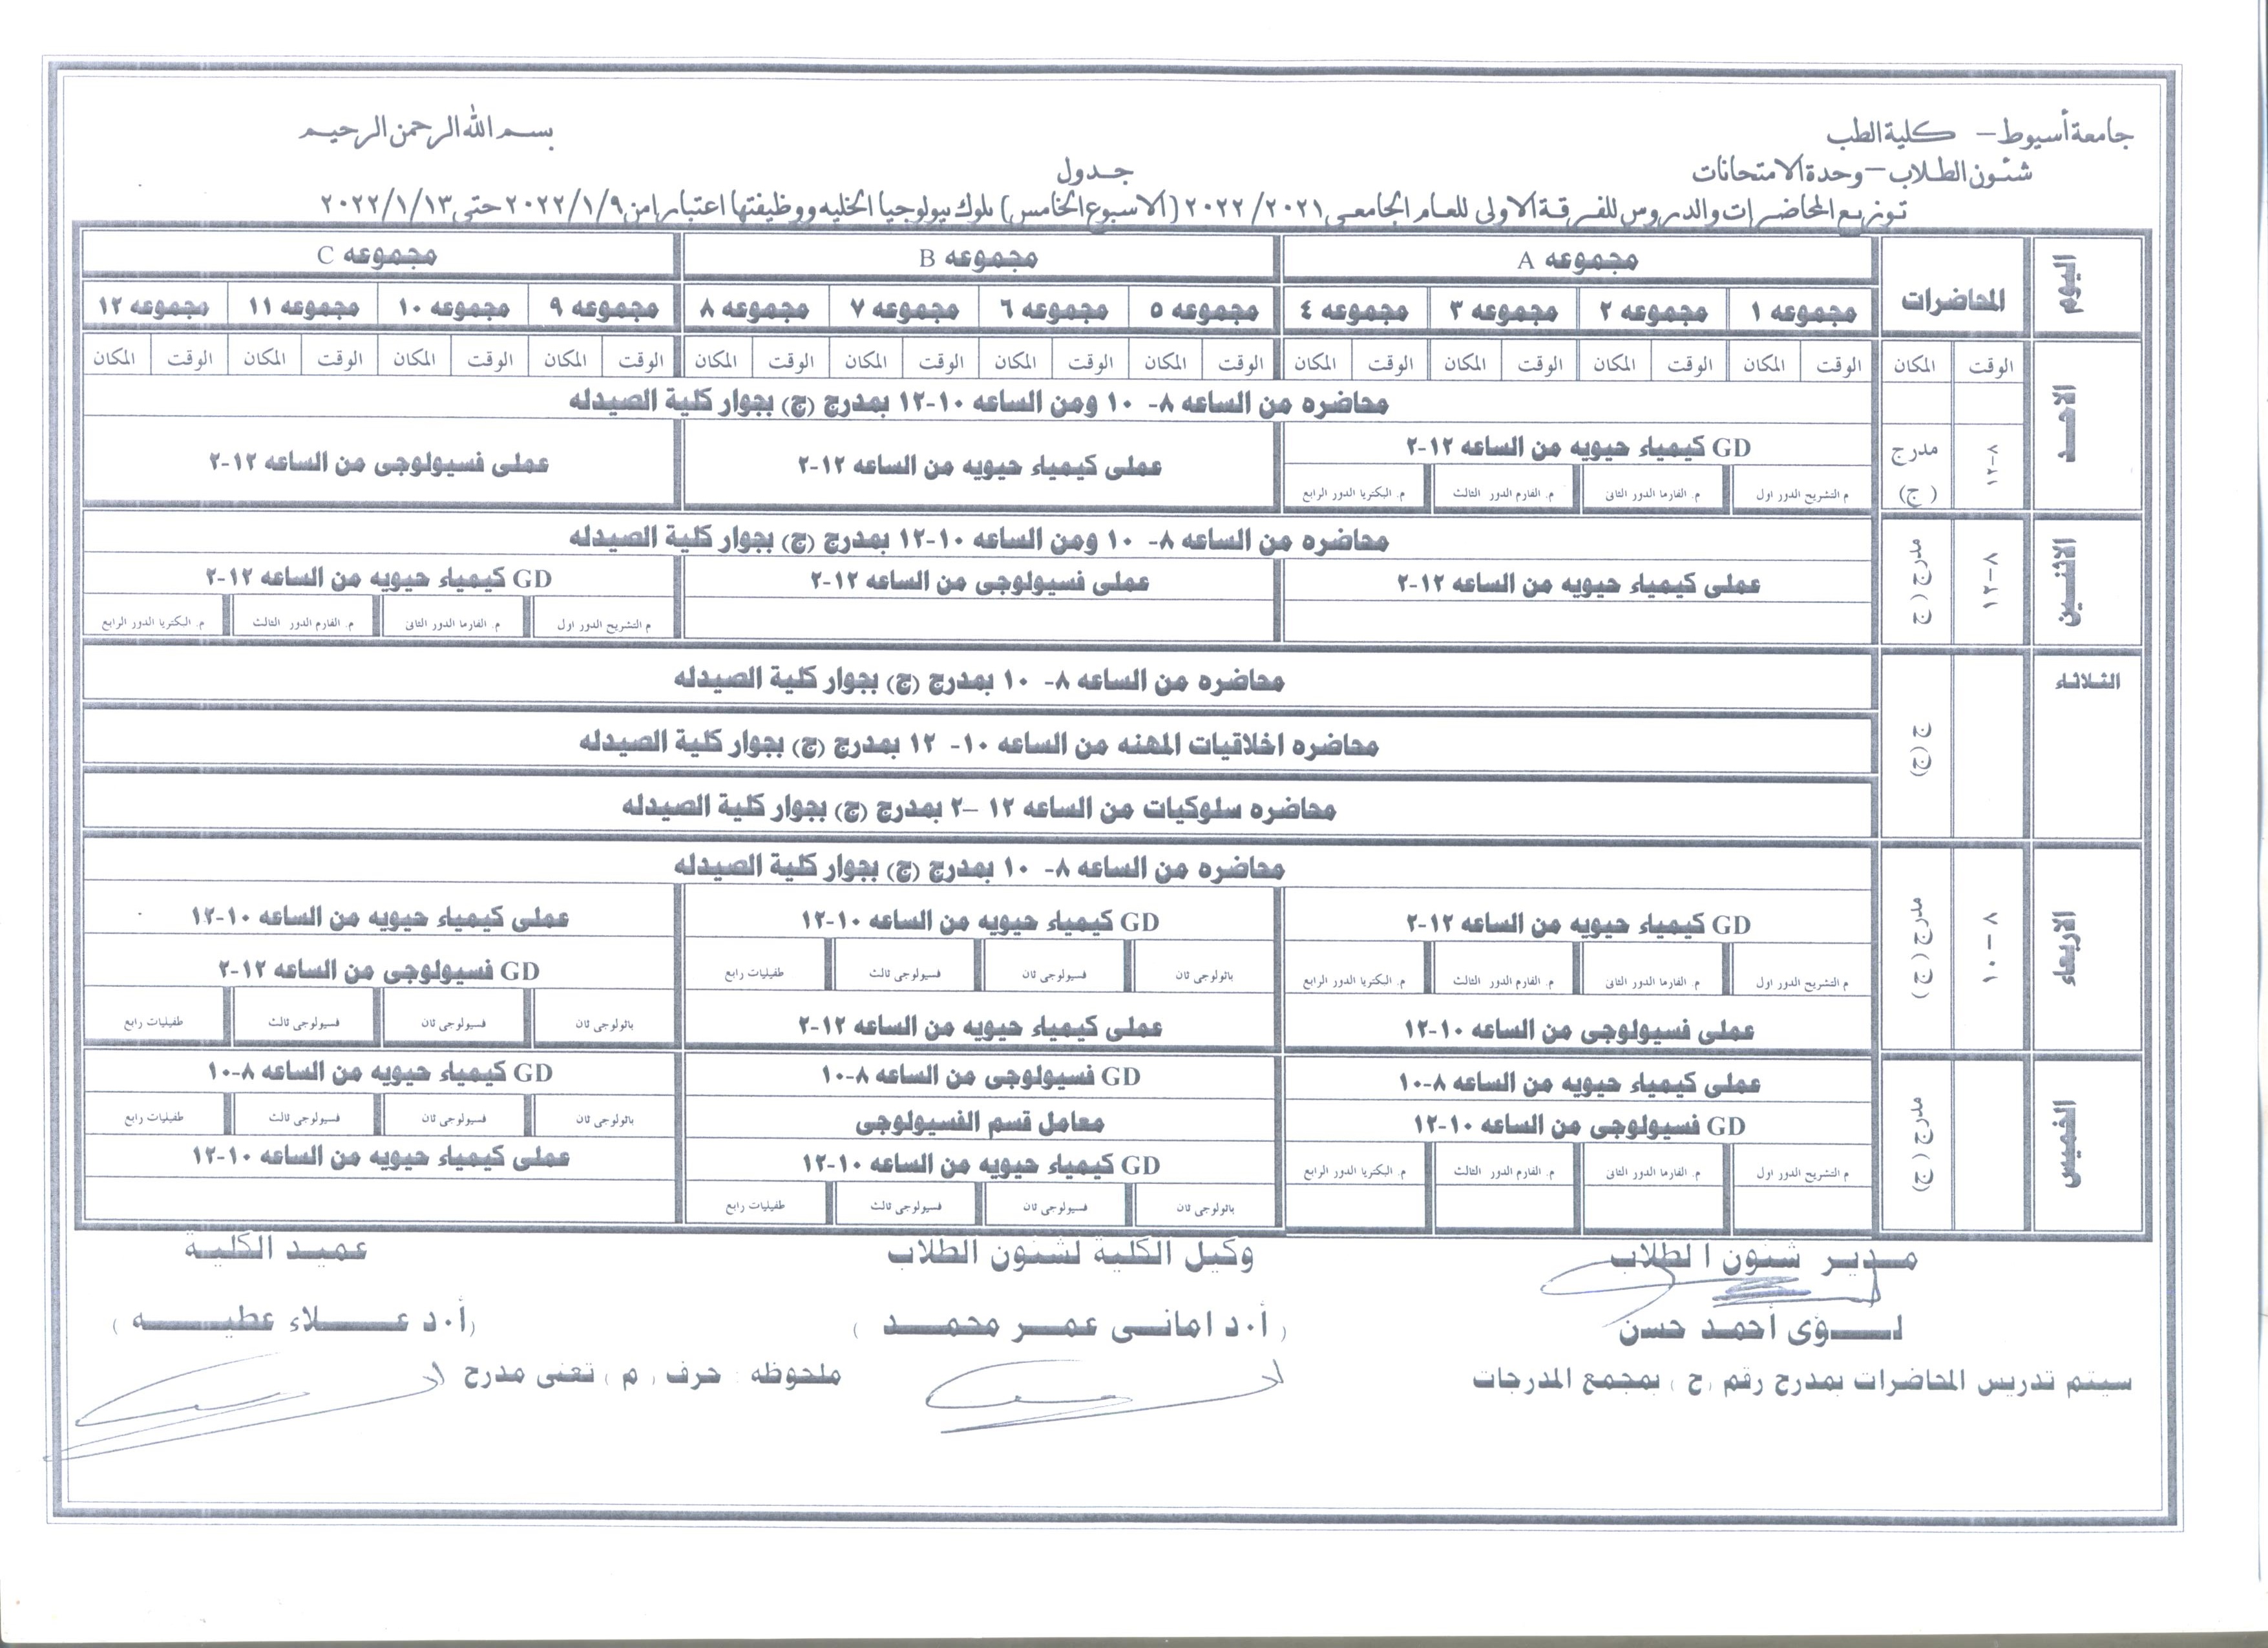 جامعة أسيوط – كلية الطب
بسم الله الرحمن الرحيم
شئون الطلاب – وحدة الامتحانات
جدول
توزيع المحاضرات والدروس للفرقة الاولى للعام الجامعى ٢٠٢١/ ٢٠٢٢ (الاسبوع الخامس) بلوك بيولوجيا الخليه ووظيفتها اعتبارا من ٢٠٢٢/١/٩ حتى ٢٠٢٢/١/١٣
اليوم المحاضرات مجموعه A مجموعه B مجموعه C
مجموعه ١ مجموعه ٢ مجموعه ٣ مجموعه ٤ مجموعه ٥ مجموعه ٦ مجموعه ٧ مجموعه ٨ مجموعه ٩ مجموعه ١٠ مجموعه ١١ مجموعه ١٢
الوقت المكان الوقت المكان الوقت المكان الوقت المكان الوقت المكان الوقت المكان الوقت المكان الوقت المكان الوقت المكان الوقت المكان الوقت المكان الوقت المكان الوقت المكان
الاحد
محاضره من الساعه ٨- ١٠ ومن الساعه ١٠-١٢ بمدرج (ج) بجوار كلية الصيدله
٨-١٢ مدرج (ج)
GD كيمياء حيويه من الساعه ١٢-٢
عملى كيمياء حيويه من الساعه ١٢-٢
عملى فسيولوجى من الساعه ١٢-٢
م التشريح الدور اول م. الفارما الدور الثانى م. الفارم الدور الثالث م. البكتريا الدور الرابع
الاثنين
٨-١٢ مدرج ( ج
محاضره من الساعه ٨- ١٠ ومن الساعه ١٠-١٢ بمدرج (ج) بجوار كلية الصيدله
عملى كيمياء حيويه من الساعه ١٢-٢
عملى فسيولوجى من الساعه ١٢-٢
GD كيمياء حيويه من الساعه ١٢-٢
م التشريح الدور اول م. الفارما الدور الثانى م. الفارم الدور الثالث م. البكتريا الدور الرابع
الثلاثاء
ج (ج)
محاضره من الساعه ٨- ١٠ بمدرج (ج) بجوار كلية الصيدله
محاضره اخلاقيات المهنه من الساعه ١٠- ١٢ بمدرج (ج) بجوار كلية الصيدله
محاضره سلوكيات من الساعه ١٢ –٢ بمدرج (ج) بجوار كلية الصيدله
الاربعاء
٨ –١٠ مدرج ( ج )
محاضره من الساعه ٨- ١٠ بمدرج (ج) بجوار كلية الصيدله
GD كيمياء حيويه من الساعه ١٢-٢
م التشريح الدور اول م. الفارما الدور الثانى م. الفارم الدور الثالث م. البكتريا الدور الرابع
عملى فسيولوجى من الساعه ١٠-١٢
GD كيمياء حيويه من الساعه ١٠-١٢
باثولوجى ثان فسيولوجى ثان فسيولوجى ثالث طفيليات رابع
عملى كيمياء حيويه من الساعه ١٢-٢
عملى كيمياء حيويه من الساعه ١٠-١٢
GD فسيولوجى من الساعه ١٢-٢
باثولوجى ثان فسيولوجى ثان فسيولوجى ثالث طفيليات رابع
الخميس
مدرج ( ج)
عملى كيمياء حيويه من الساعه ٨-١٠
GD فسيولوجى من الساعه ١٠-١٢
م التشريح الدور اول م. الفارما الدور الثانى م. الفارم الدور الثالث م. البكتريا الدور الرابع
GD فسيولوجى من الساعه ٨-١٠
معامل قسم الفسيولوجى
GD كيمياء حيويه من الساعه ١٠-١٢
باثولوجى ثان فسيولوجى ثان فسيولوجى ثالث طفيليات رابع
GD كيمياء حيويه من الساعه ٨-١٠
باثولوجى ثان فسيولوجى ثان فسيولوجى ثالث طفيليات رابع
عملى كيمياء حيويه من الساعه ١٠-١٢
مدير شئون الطلاب
وكيل الكلية لشئون الطلاب
عميد الكلية
لؤى أحمد حسن
( أ.د امانى عمر محمد )
(أ.د علاء عطيه )
سيتم تدريس المحاضرات بمدرج رقم (ج ) بمجمع المدرجات
ملحوظه : حرف ( م ) تعنى مدرج